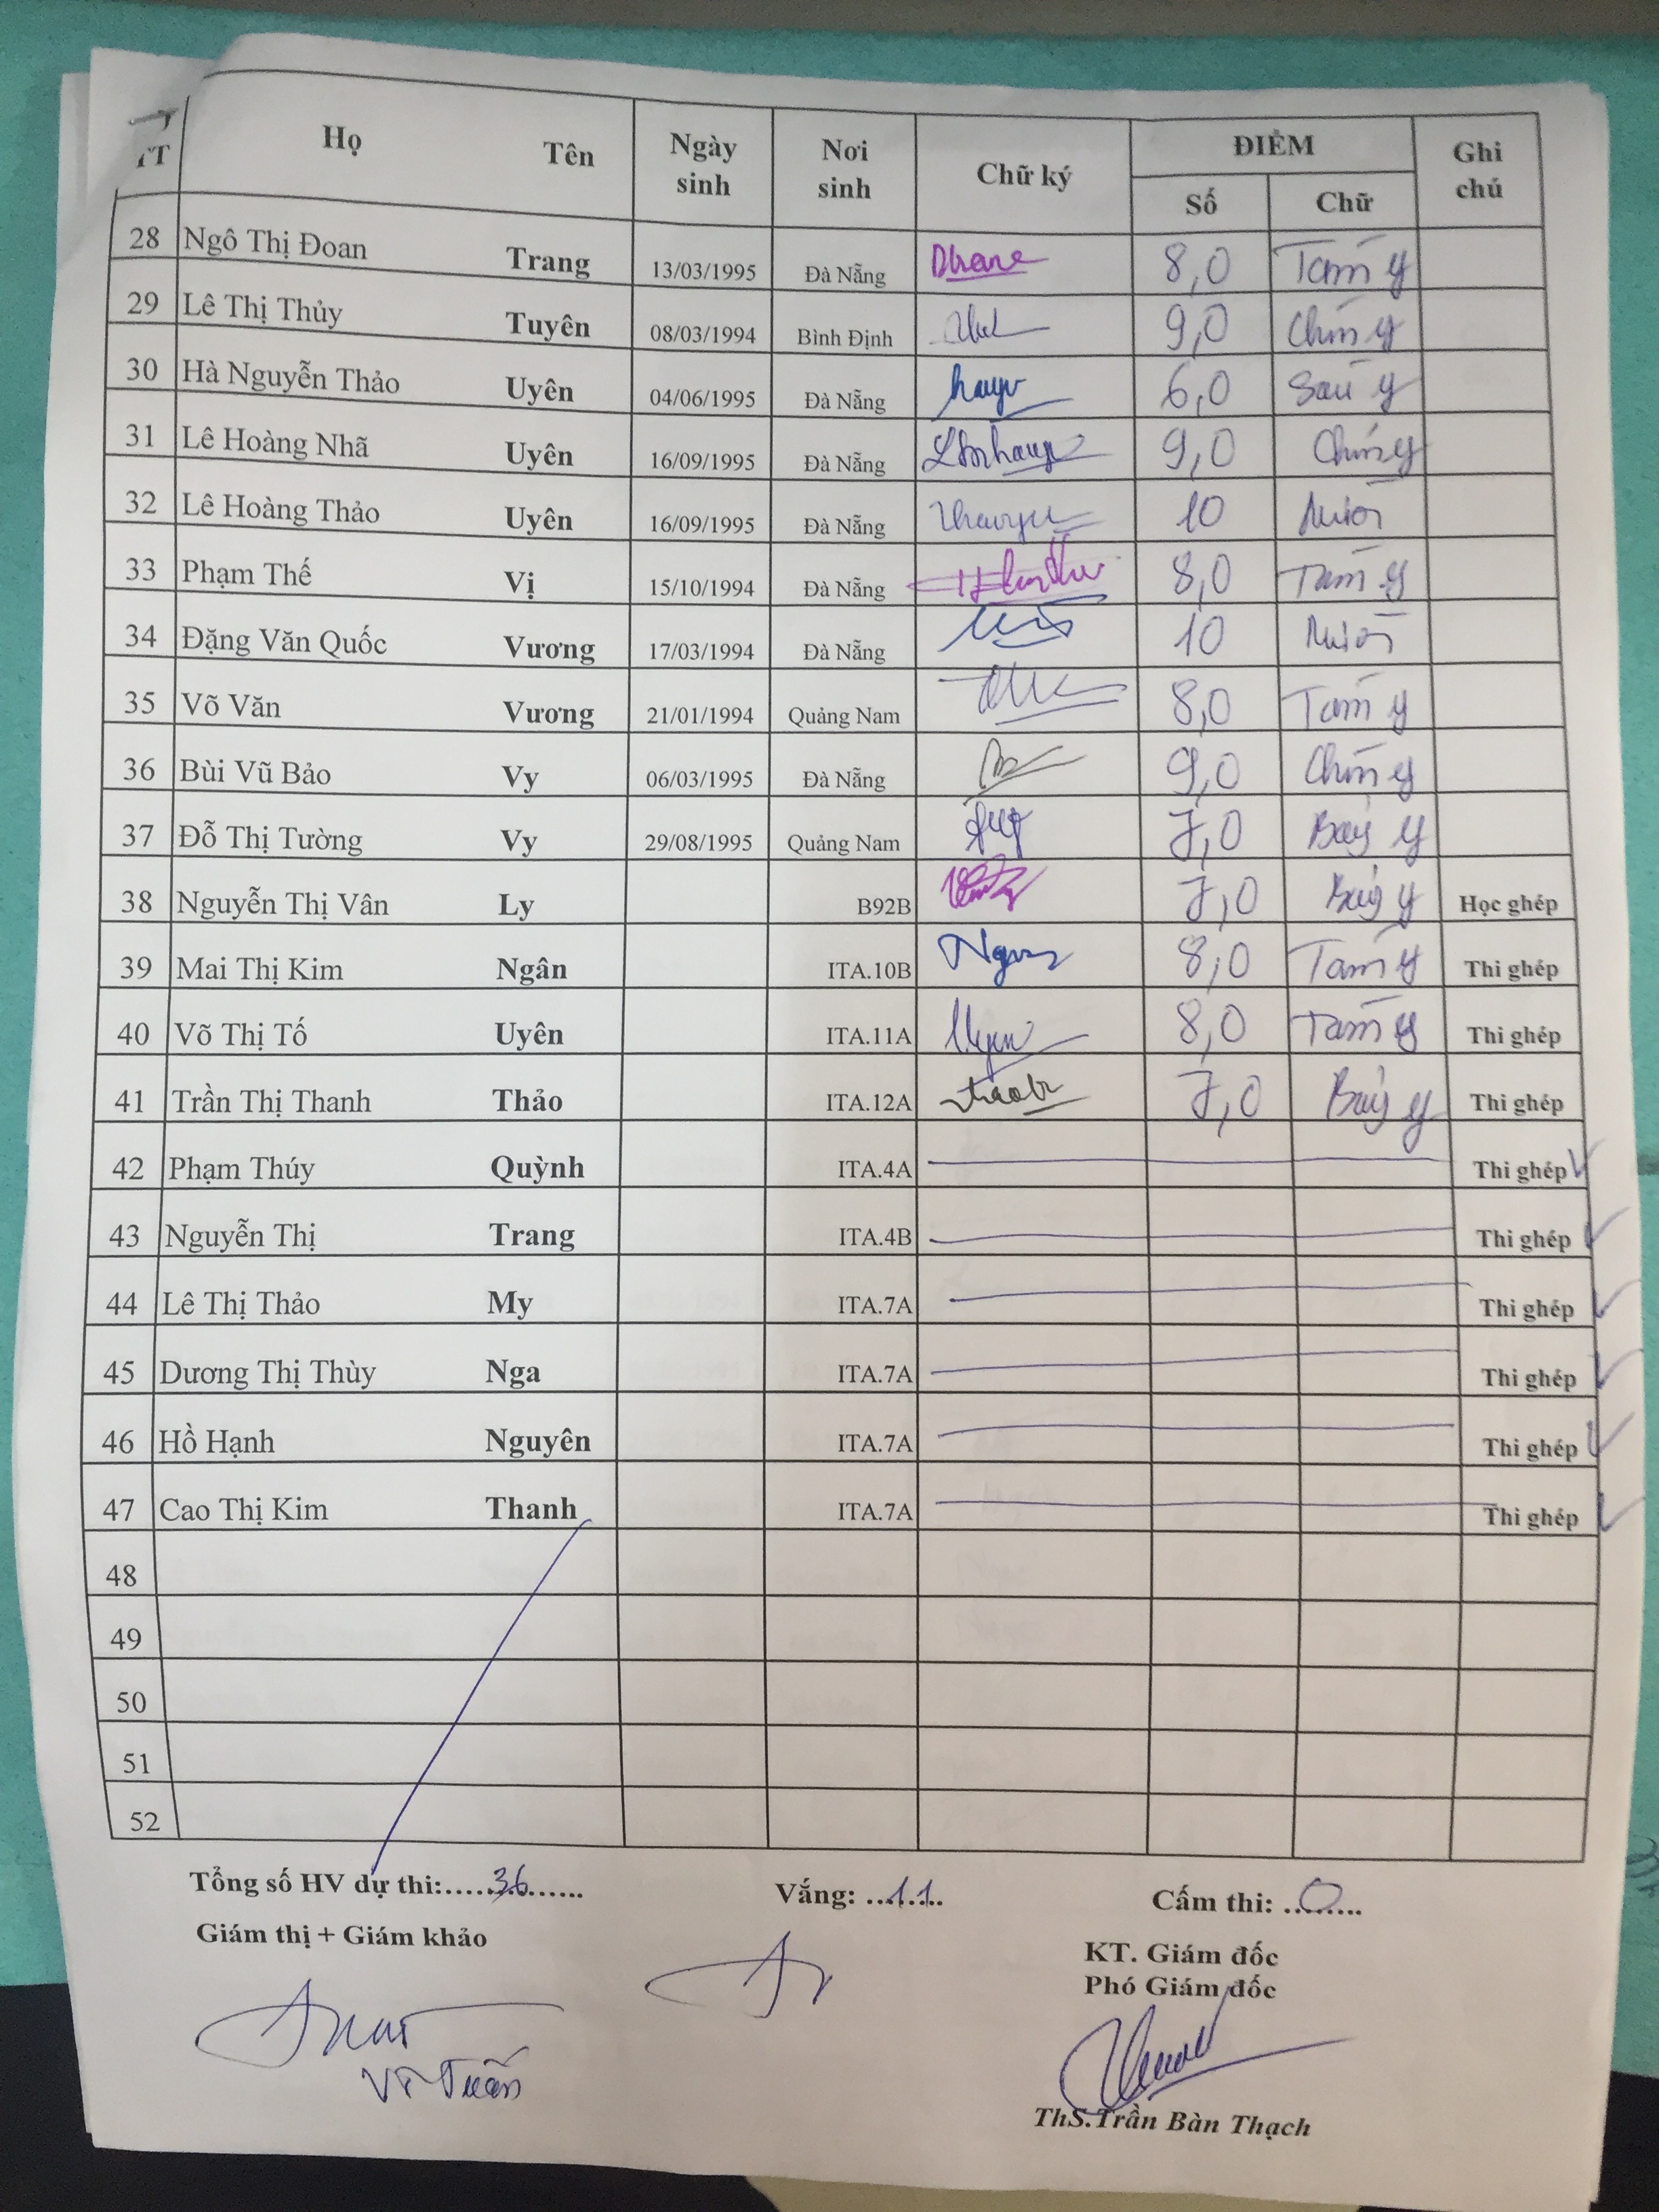 TT Họ Tên Ngày sinh Nơi sinh Chữ ký ĐIỂM Ghi chú
Số Chữ
28 Ngô Thị Đoan Trang 13/03/1995 Đà Nẵng 8,0 Tám y
29 Lê Thị Thủy Tuyên 08/03/1994 Bình Định 9,0 Chín y
30 Hà Nguyễn Thảo Uyên 04/06/1995 Đà Nẵng 6,0 Sáu y
31 Lê Hoàng Nhã Uyên 16/09/1995 Đà Nẵng 9,0 Chín y
32 Lê Hoàng Thảo Uyên 16/09/1995 Đà Nẵng 10 Mười
33 Phạm Thế Vị 15/10/1994 Đà Nẵng 8,0 Tám y
34 Đặng Văn Quốc Vương 17/03/1994 Đà Nẵng 10 Mười
35 Võ Văn Vương 21/01/1994 Quảng Nam 8,0 Tám y
36 Bùi Vũ Bảo Vy 06/03/1995 Đà Nẵng 9,0 Chín y
37 Đỗ Thị Tường Vy 29/08/1995 Quảng Nam 7,0 Bảy y
38 Nguyễn Thị Vân Ly B92B 7,0 Bảy y Học ghép
39 Mai Thị Kim Ngân ITA.10B 8,0 Tám y Thi ghép
40 Võ Thị Tố Uyên ITA.11A 8,0 Tám y Thi ghép
41 Trần Thị Thanh Thảo ITA.12A 7,0 Bảy y Thi ghép
42 Phạm Thúy Quỳnh ITA.4A Thi ghép
43 Nguyễn Thị Trang ITA.4B Thi ghép
44 Lê Thị Thảo My ITA.7A Thi ghép
45 Dương Thị Thùy Nga ITA.7A Thi ghép
46 Hồ Hạnh Nguyên ITA.7A Thi ghép
47 Cao Thị Kim Thanh ITA.7A Thi ghép
48
49
50
51
52
Tổng số HV dự thi:.....36...... Vắng: ...11... Cấm thi: ...0...
Giám thị + Giám khảo KT. Giám đốc
Phó Giám đốc
Tuấn
ThS.Trần Bàn Thạch